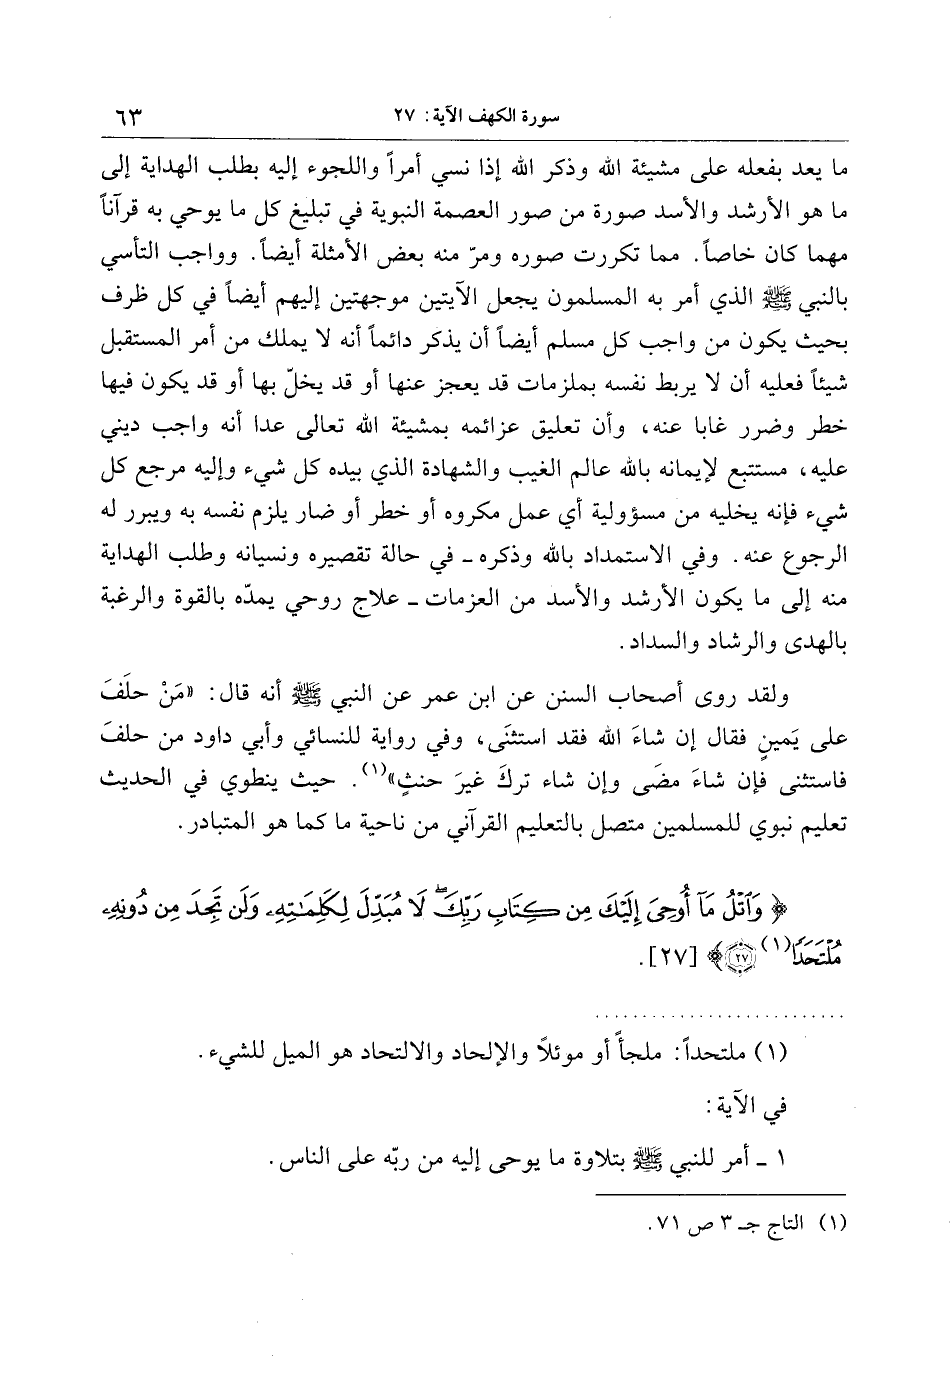 سورة الكهف الآية: ٢٧ ٦٣
ما يعد بفعله على مشيئة الله وذكر الله إذا نسي أمراً واللجوء إليه بطلب الهداية إلى
ما هو الأرشد والأسد صورة من صور العصمة النبوية في تبليغ كل ما يوحي به قرآناً
مهما كان خاصاً. مما تكررت صوره ومرّ منه بعض الأمثلة أيضاً. وواجب التأسي
بالنبي ﷺ الذي أمر به المسلمون يجعل الآيتين موجهتين إليهم أيضاً في كل ظرف
بحيث يكون من واجب كل مسلم أيضاً أن يذكر دائماً أنه لا يملك من أمر المستقبل
شيئاً فعليه أن لا يربط نفسه بملزمات قد يعجز عنها أو قد يخلّ بها أو قد يكون فيها
خطر وضرر غابا عنه، وأن تعليق عزائمه بمشيئة الله تعالى عدا أنه واجب ديني
عليه، مستتبع لإيمانه بالله عالم الغيب والشهادة الذي بيده كل شيء وإليه مرجع كل
شيء فإنه يخليه من مسؤولية أي عمل مكروه أو خطر أو ضار يلزم نفسه به ويبرر له
الرجوع عنه. وفي الاستمداد بالله وذكره ـ في حالة تقصيره ونسيانه وطلب الهداية
منه إلى ما يكون الأرشد والأسد من العزمات ـ علاج روحي يمدّه بالقوة والرغبة
بالهدى والرشاد والسداد.
ولقد روى أصحاب السنن عن ابن عمر عن النبي ﷺ أنه قال: «مَنْ حلَفَ
على يَمينٍ فقال إن شاءَ الله فقد استثنَى، وفي رواية للنسائي وأبي داود من حلفَ
فاستثنى فإن شاءَ مضَى وإن شاء تركَ غيرَ حنثٍ»(١). حيث ينطوي في الحديث
تعليم نبوي للمسلمين متصل بالتعليم القرآني من ناحية ما كما هو المتبادر.
﴿ وَٱتۡلُ مَآ أُوحِيَ إِلَيۡكَ مِن كِتَابِ رَبِّكَۖ لَا مُبَدِّلَ لِكَلِمَٰتِهِۦ وَلَن تَجِدَ مِن دُونِهِۦ
مُلۡتَحَدٗا(١) ٢٧﴾ [٢٧].
(١) ملتحداً: ملجأً أو موئلاً والإلحاد والالتحاد هو الميل للشيء.
في الآية:
١ ـ أمر للنبي ﷺ بتلاوة ما يوحى إليه من ربّه على الناس.
(١) التاج جـ ٣ ص ٧١.